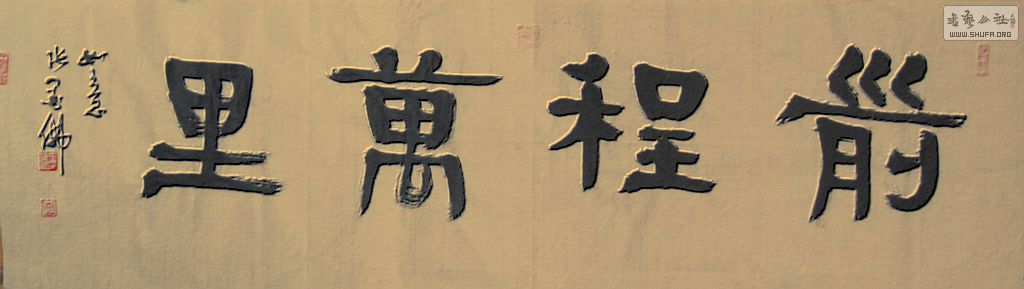 前程萬里
如意
書藝公社
WWW.SHUFA.ORG